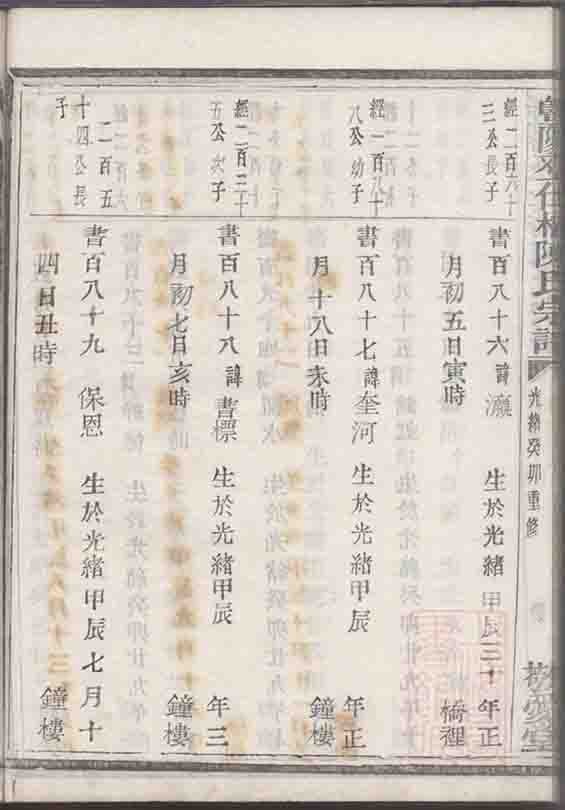 陳氏宗譜
光緒癸卯重修
敬愛堂
經二百六十
三公長子
書百八十六 諱灝 生於光緒甲辰三十年正
月初五日寅時 橋裡
經二百八十
八公幼子
書百八十七 諱奎河 生於光緒甲辰 年正
月十八日未時 鐘樓
經二百三十
五公次子
書百八十八 諱書標 生於光緒甲辰 年三
月初七日亥時 鐘樓
二百五
十四公長
子
書百八十九 保恩 生於光緒甲辰七月十
四日丑時 鐘樓